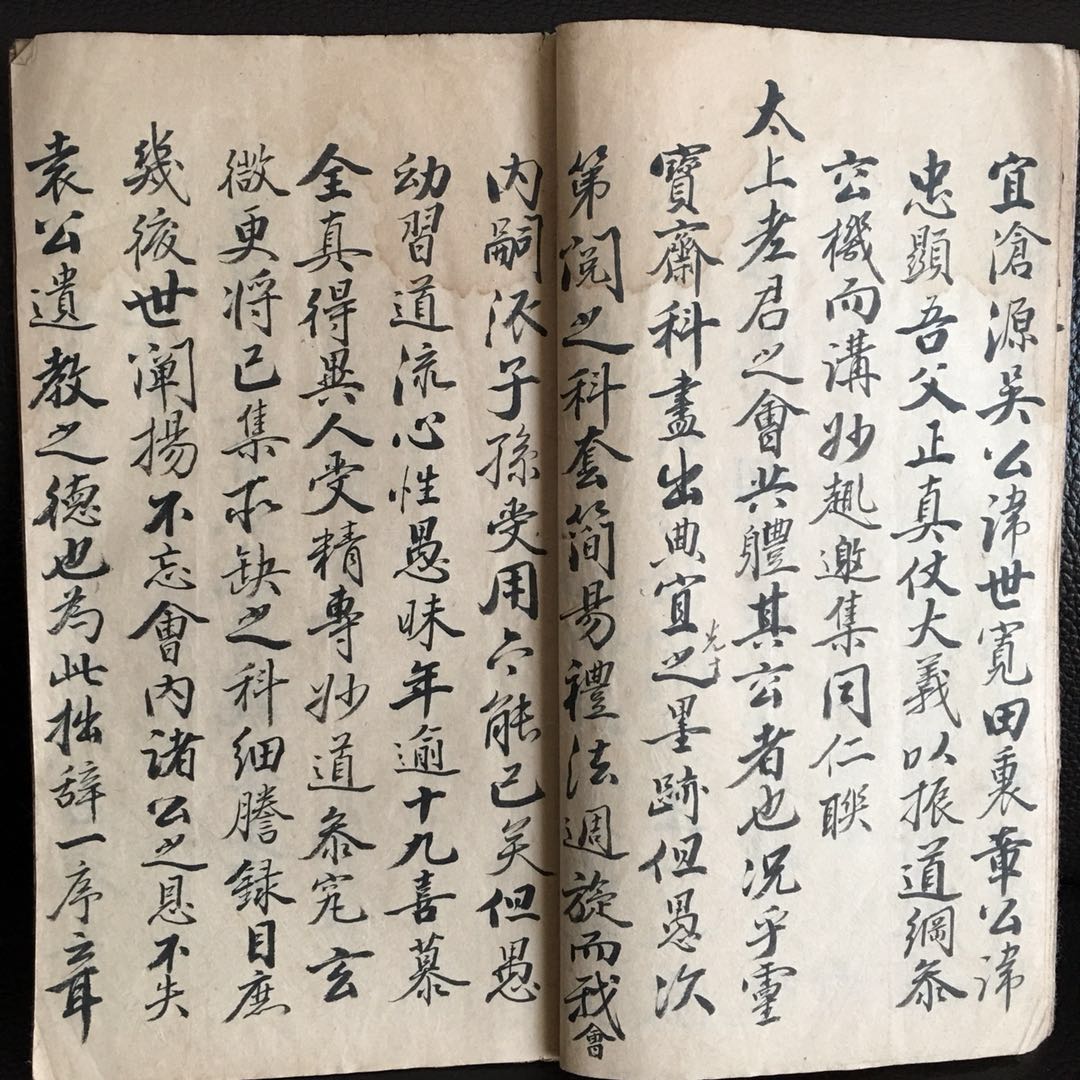 宜滄源吳公諱世寬田裏章公諱
忠顯吾父正真仗大義以振道綱參
玄機而講妙趣邀集同仁聯
太上老君之會共體其玄者也況乎靈
寶齋科盡出典宜之墨跡但愚次
第閱之科套簡易禮法週旋而我會
内嗣派子孫受用亦能已矣但愚
幼習道流心性愚昧年逾十九喜慕
全真得異人受精專妙道參究玄
微更将已集所缺之科细謄録目庶
幾後世闡揚不忘會内諸公之恩不失
袁公遺教之德也為此拙辞一序云耳